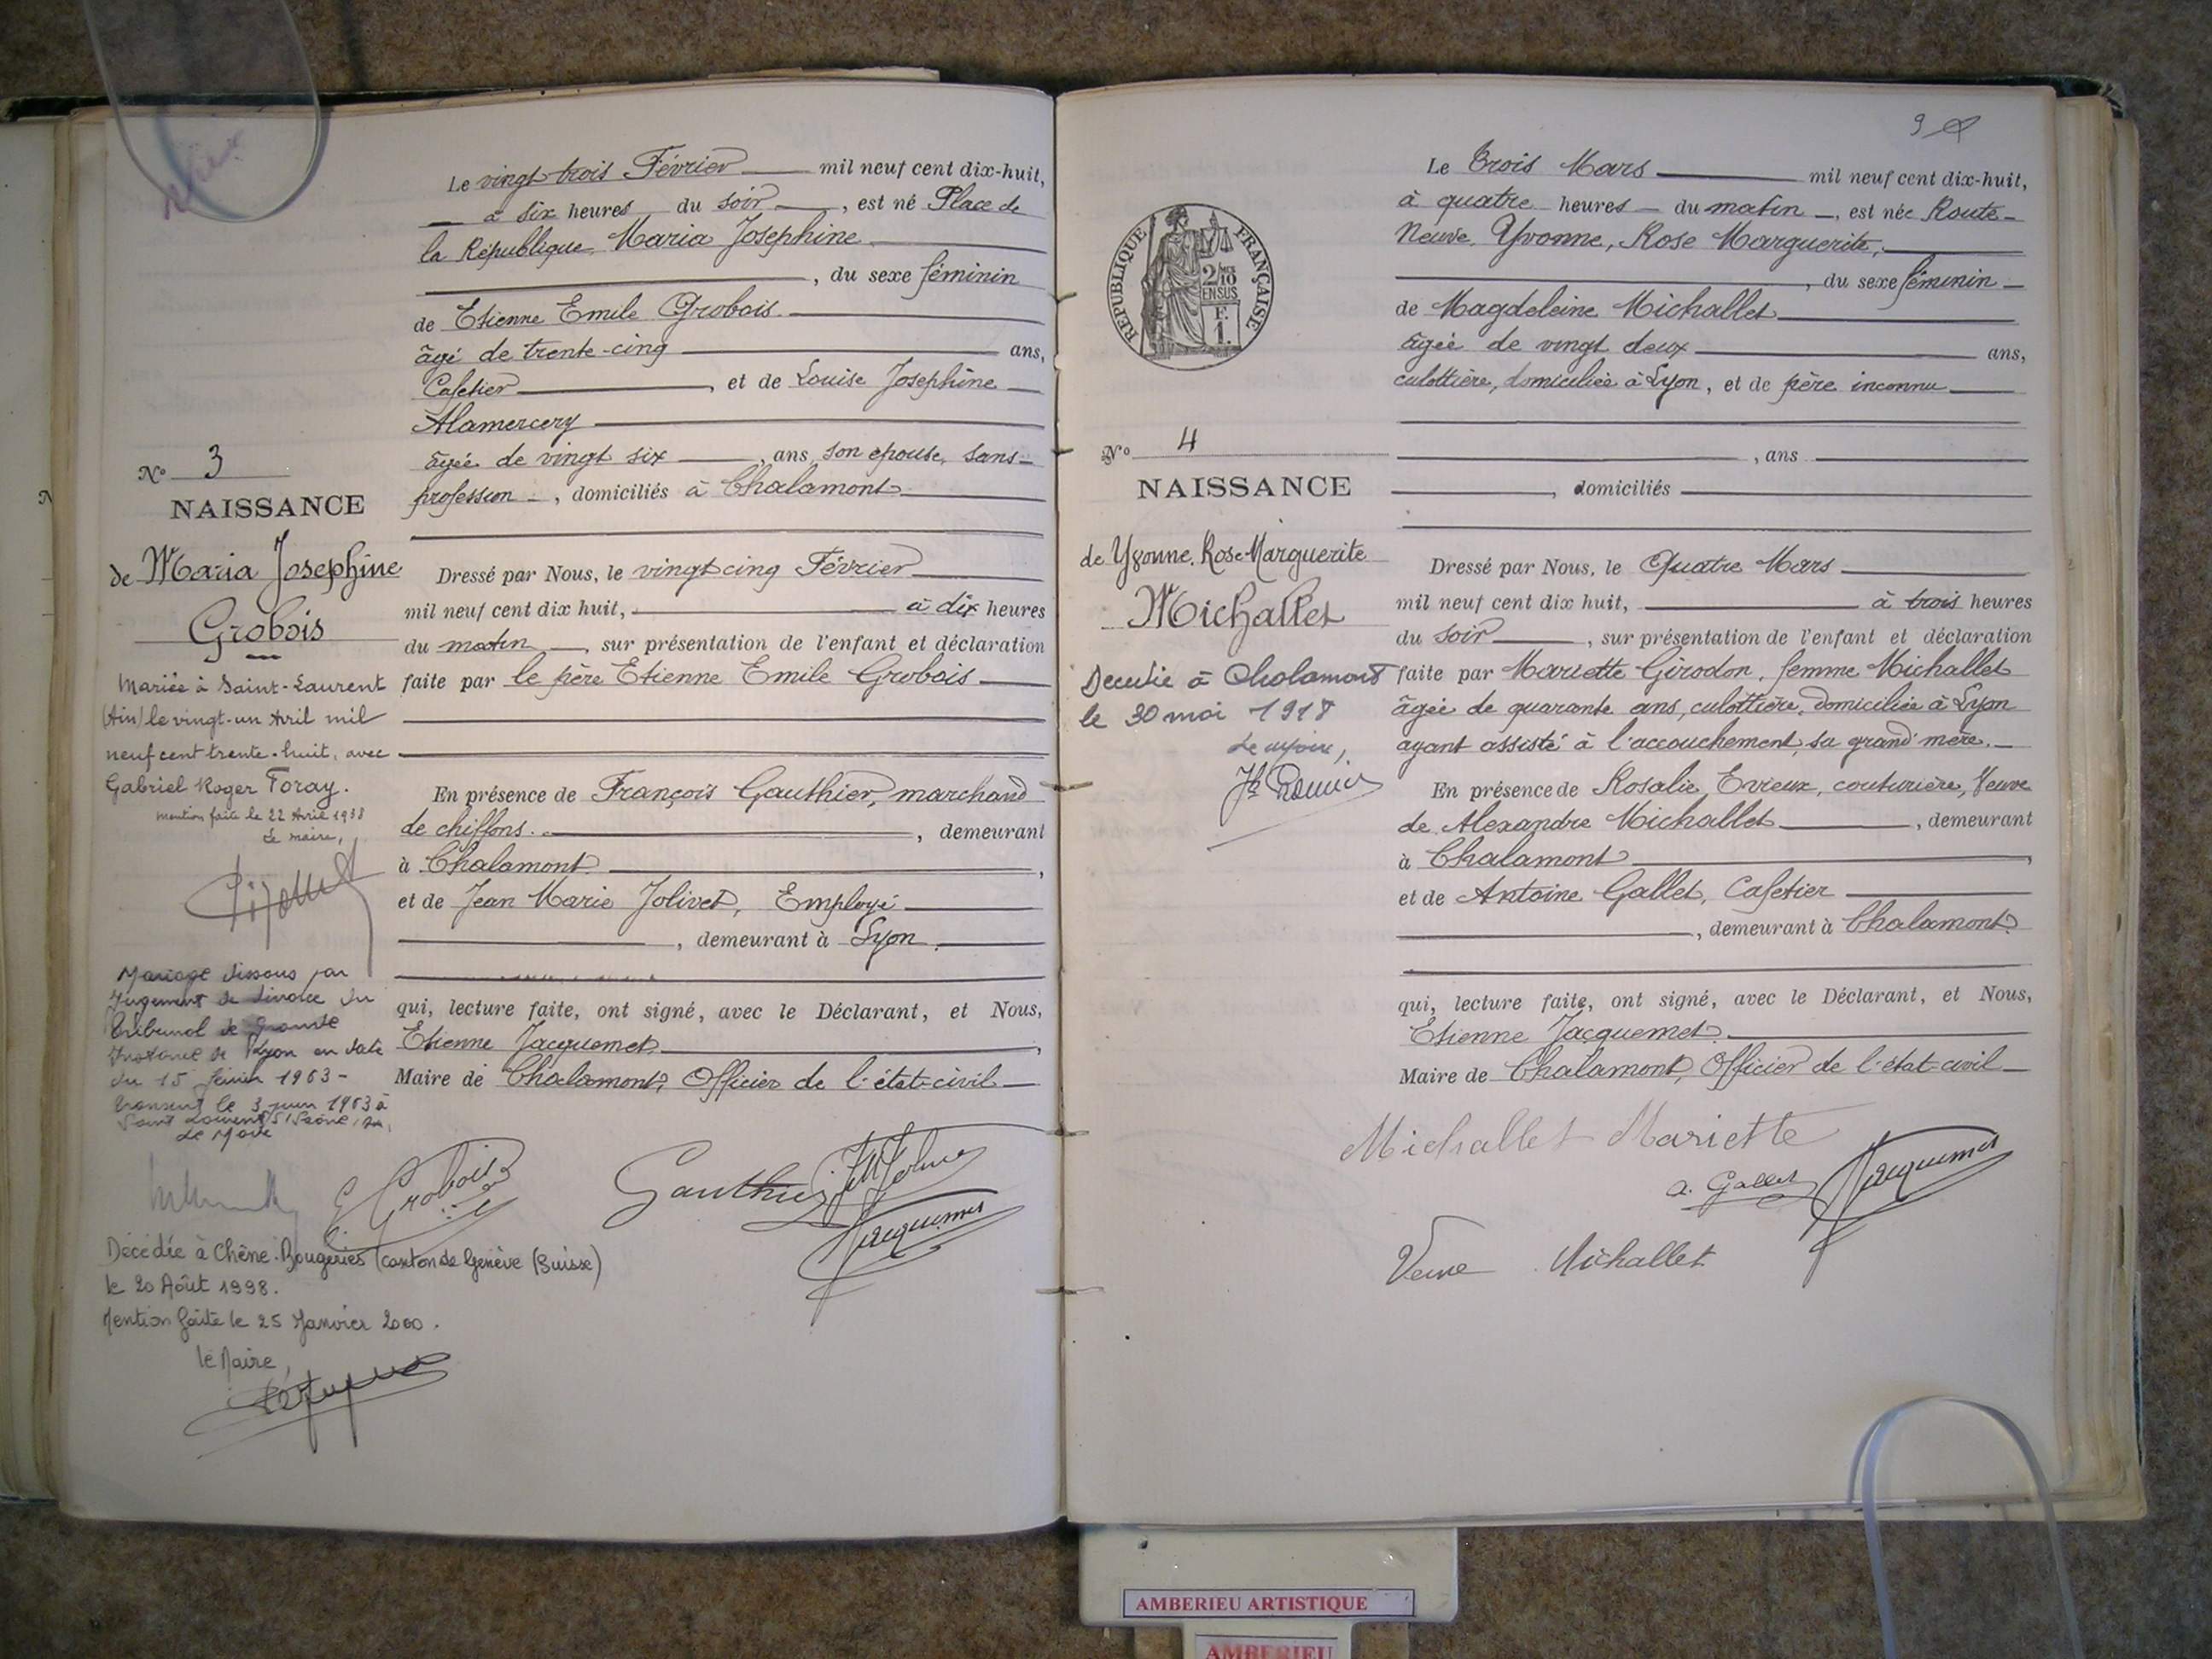 Le vingt trois Février mil neuf cent dix-huit,
à six heures du soir, est né Place de
la République, Maria Josephine
, du sexe féminin
de Etienne Emile Grobois
âgé de trente-cinq ans,
Cafetier, et de Louise Josephine
Alamercery
âgée de vingt six ans, son epouse, sans-
profession, domiciliés à Chalamont
N° 3
NAISSANCE
de Maria Josephine
Grobois
Dressé par Nous, le vingt cinq Février
mil neuf cent dix huit, à dix heures
du matin, sur présentation de l'enfant et déclaration
faite par le père Etienne Emile Grobois
En présence de François Gauthier, marchand
de chiffons, demeurant
à Chalamont,
et de Jean Marie Jolivet, Employé
, demeurant à Lyon.
qui, lecture faite, ont signé, avec le Déclarant, et Nous,
Etienne Jacquemet,
Maire de Chalamont, Officier de l'état-civil
Mariée à Saint-Laurent
(Ain) le vingt-un Avril mil
neuf cent trente-huit, avec
Gabriel Roger Foray.
Mention faite le 22 Avril 1938
Le maire,
Mariage dissous par
Jugement de divorce du
Tribunal de Grande
Instance de Lyon en date
du 15 1963 -
transcrit le 3 juin 1963 à
Saint Laurent s/ Saône,
Le Maire
E. Grobois
Gauthier
Jacquemet
Décédée à Chêne-Bougeries (canton de Genève (Suisse)
le 20 Août 1998.
Mention faite le 25 Janvier 2000.
le Maire,
9
REPUBLIQUE FRANÇAISE
2/10
EN SUS
F.
1.
Le Trois Mars mil neuf cent dix-huit,
à quatre heures du matin, est née Route-
Neuve, Yvonne, Rose Marguerite,
, du sexe féminin
de Magdeleine Michallet
âgée de vingt deux ans,
culottière, domiciliée à Lyon, et de père inconnu
, ans
, domiciliés
N° 4
NAISSANCE
de Yvonne, Rose-Marguerite
Michallet
Décédée à Chalamont
le 30 mai 1918
Le maire,
Dressé par Nous, le Quatre Mars
mil neuf cent dix huit, à trois heures
du soir, sur présentation de l'enfant et déclaration
faite par Mariette Girodon, femme Michallet
âgée de quarante ans, culottière, domiciliée à Lyon
ayant assisté à l'accouchement, sa grand'mère.
En présence de Rosalie Evieux, couturière, Veuve
de Alexandre Michallet, demeurant
à Chalamont,
et de Antoine Gallet, Cafetier
, demeurant à Chalamont
qui, lecture faite, ont signé, avec le Déclarant, et Nous,
Etienne Jacquemet.
Maire de Chalamont, Officier de l'état-civil
Michallet Mariette
a. Gallet
Jacquemet
Veuve Michallet
AMBERIEU ARTISTIQUE
AMBERIEU